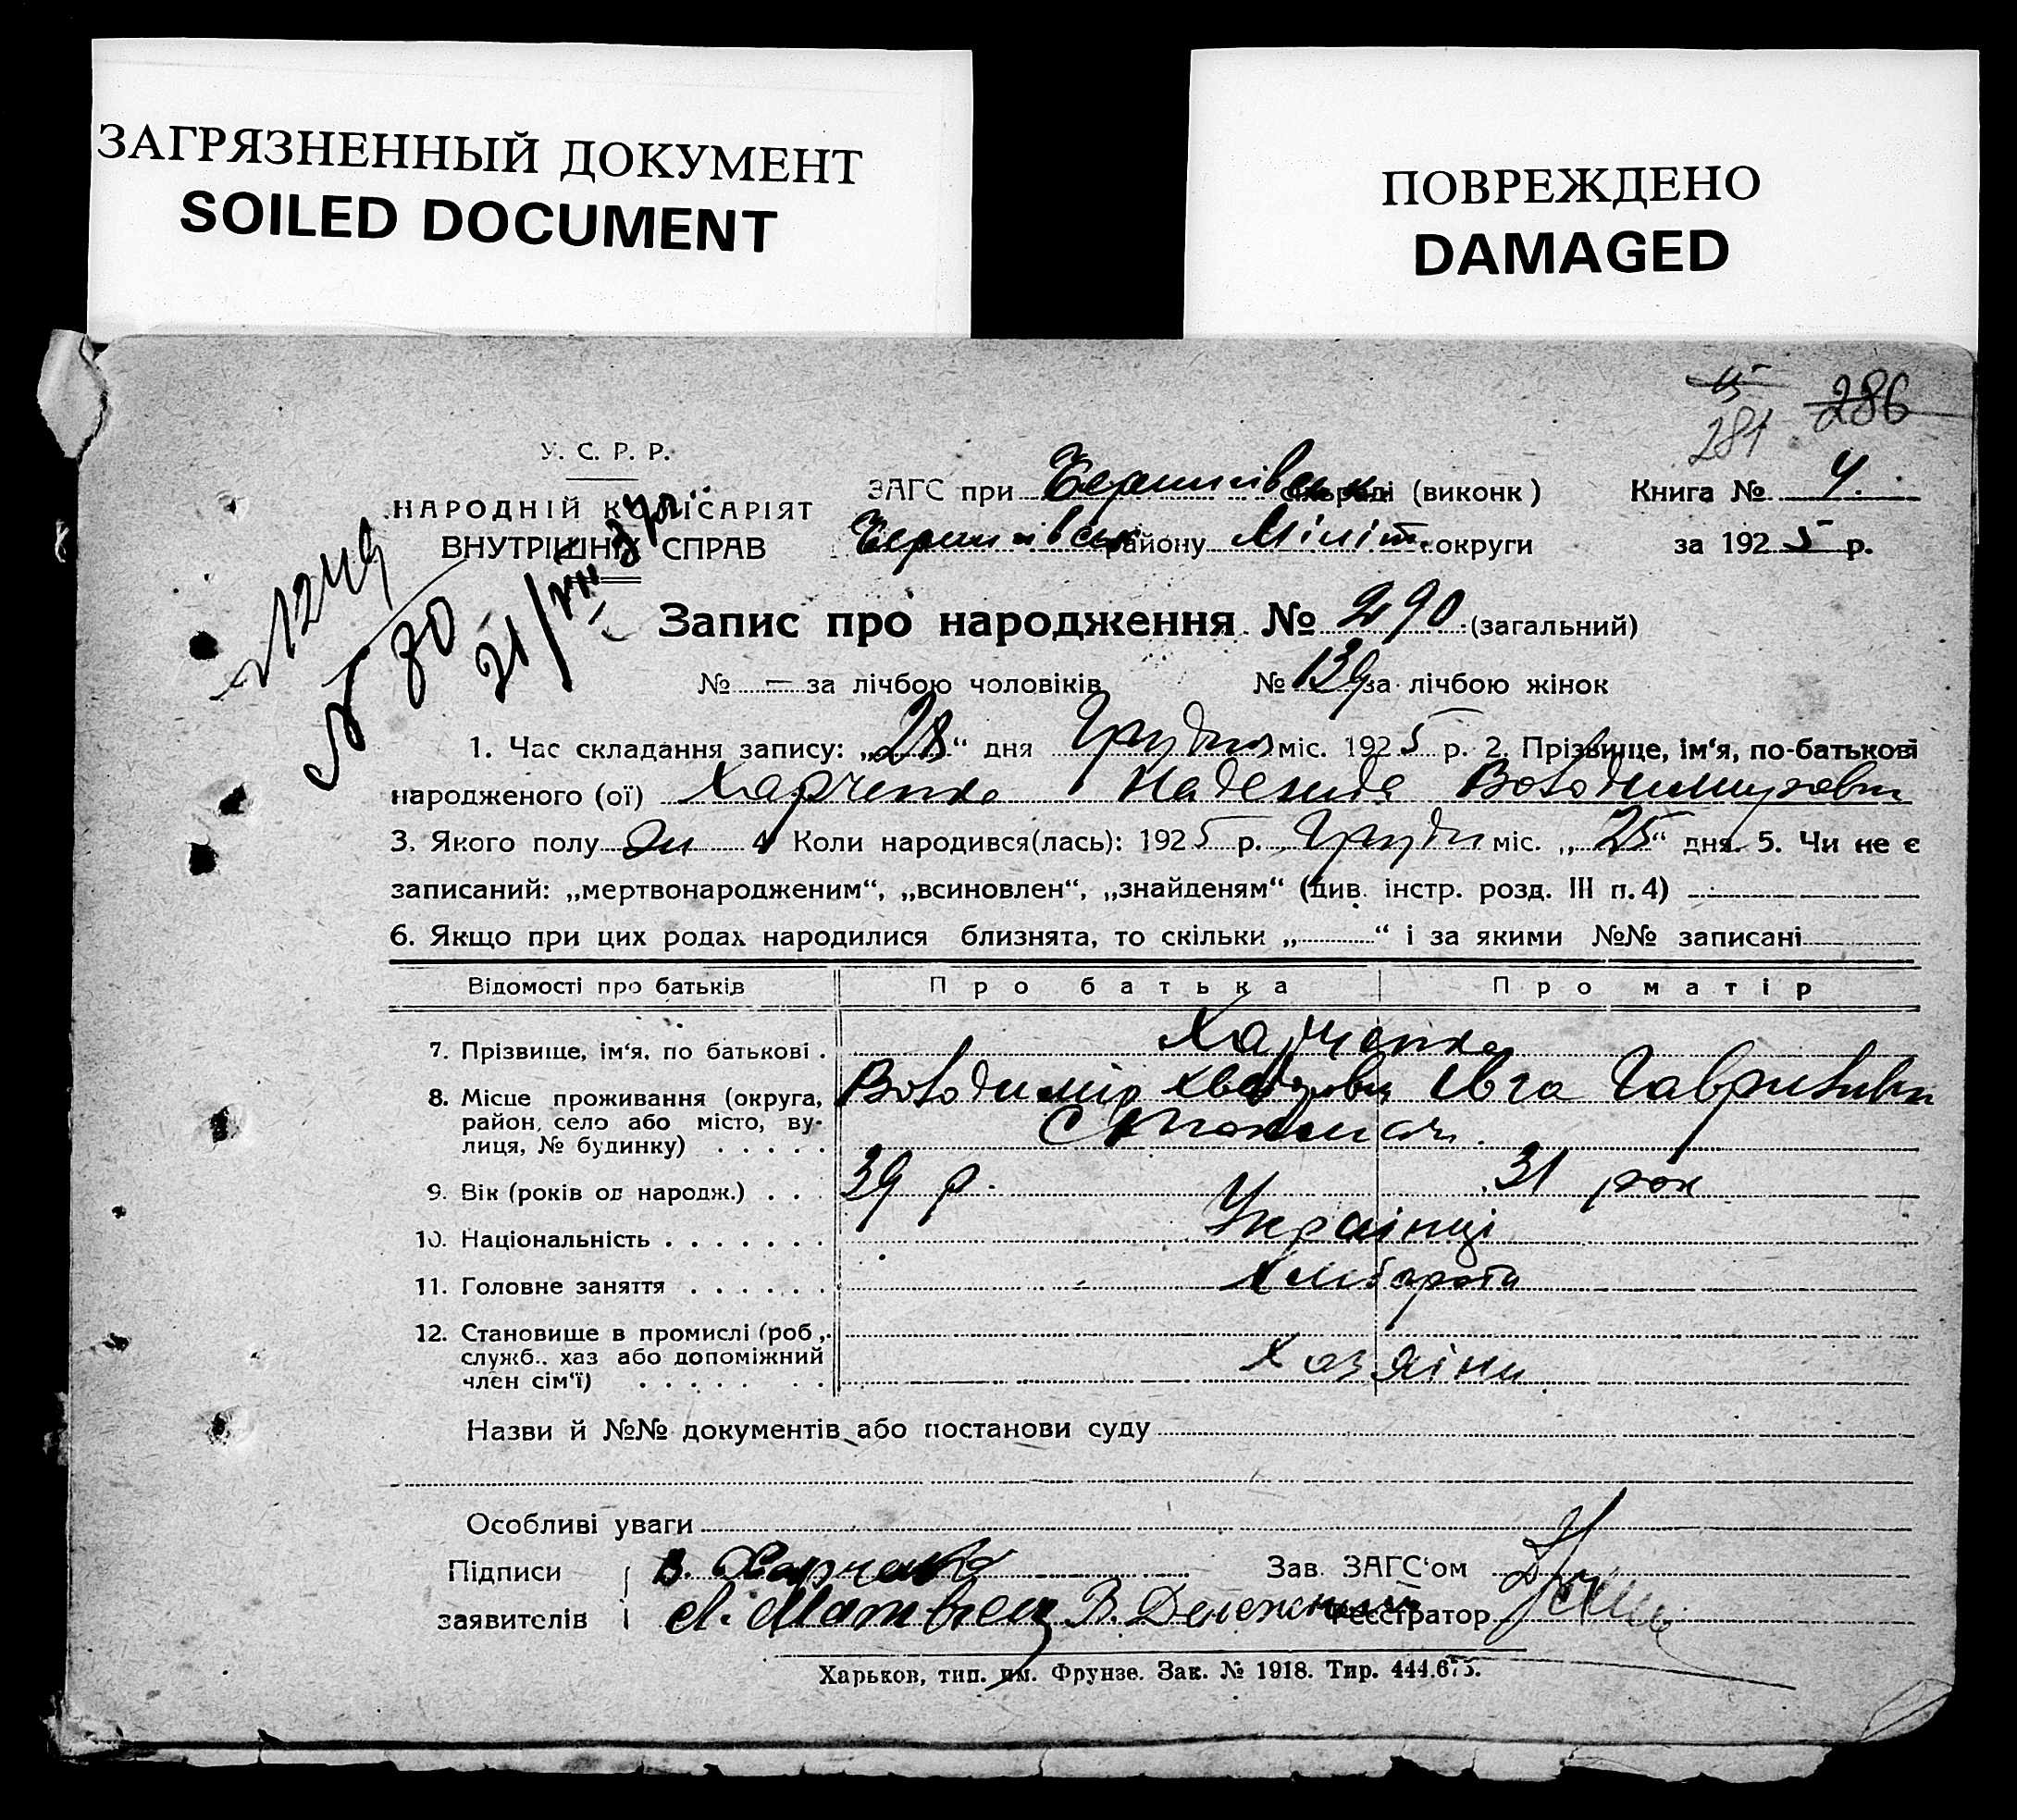 ЗАГРЯЗНЕННЫЙ ДОКУМЕНТ
SOILED DOCUMENT
ПОВРЕЖДЕНО
DAMAGED
286
281
У. С. Р. Р.
НАРОДНІЙ КОМІСАРІЯТ
ВНУТРІШНІХ СПРАВ
ЗАГС при (виконк)
району округи
Книга № 4.
за 1925 р.
№ 80
Запис про народження № 290 (загальний)
№ — за лічбою чоловіків № 139 за лічбою жінок
1. Час складання запису: „28“ дня Грудня міс. 1925 р. 2. Прізвище, ім‘я, по-батькові
народженого (ої) Харченко Надежда Володимировн
3. Якого полу жи 4 Коли народився(лась): 1925 р. Грудн міс. „25“ дня. 5. Чи не є
записаний: „мертвонародженим“, „всиновлен“, „знайденям“ (див. інстр. розд. III п. 4)
6. Якщо при цих родах народилися близнята, то скільки „ “ і за якими №№ записані
Відомості про батьків Про батька Про матір
7. Прізвище, ім‘я, по батькові . Харченко
8. Місце проживання (округа, Володимір Явга Гаврилівн
район, село або місто, ву-
лиця, № будинку) . . . . .
9. Вік (років од народж.) . . . 39 р. 31 рок
10. Національність . . . . . . . Українці
11. Головне заняття . . . . . . Хліборобі
12. Становище в промислі (роб.,
служб., хаз або допоміжний Хазяіни
член сім‘ї) . . . . . . .
Назви й №№ документів або постанови суду
Особливі уваги
Підписи В. Харченко Зав. ЗАГС‘ом
заявителів Реєстратор
Харьков, тип. им. Фрунзе. Зак. № 1918. Тир. 444.675.